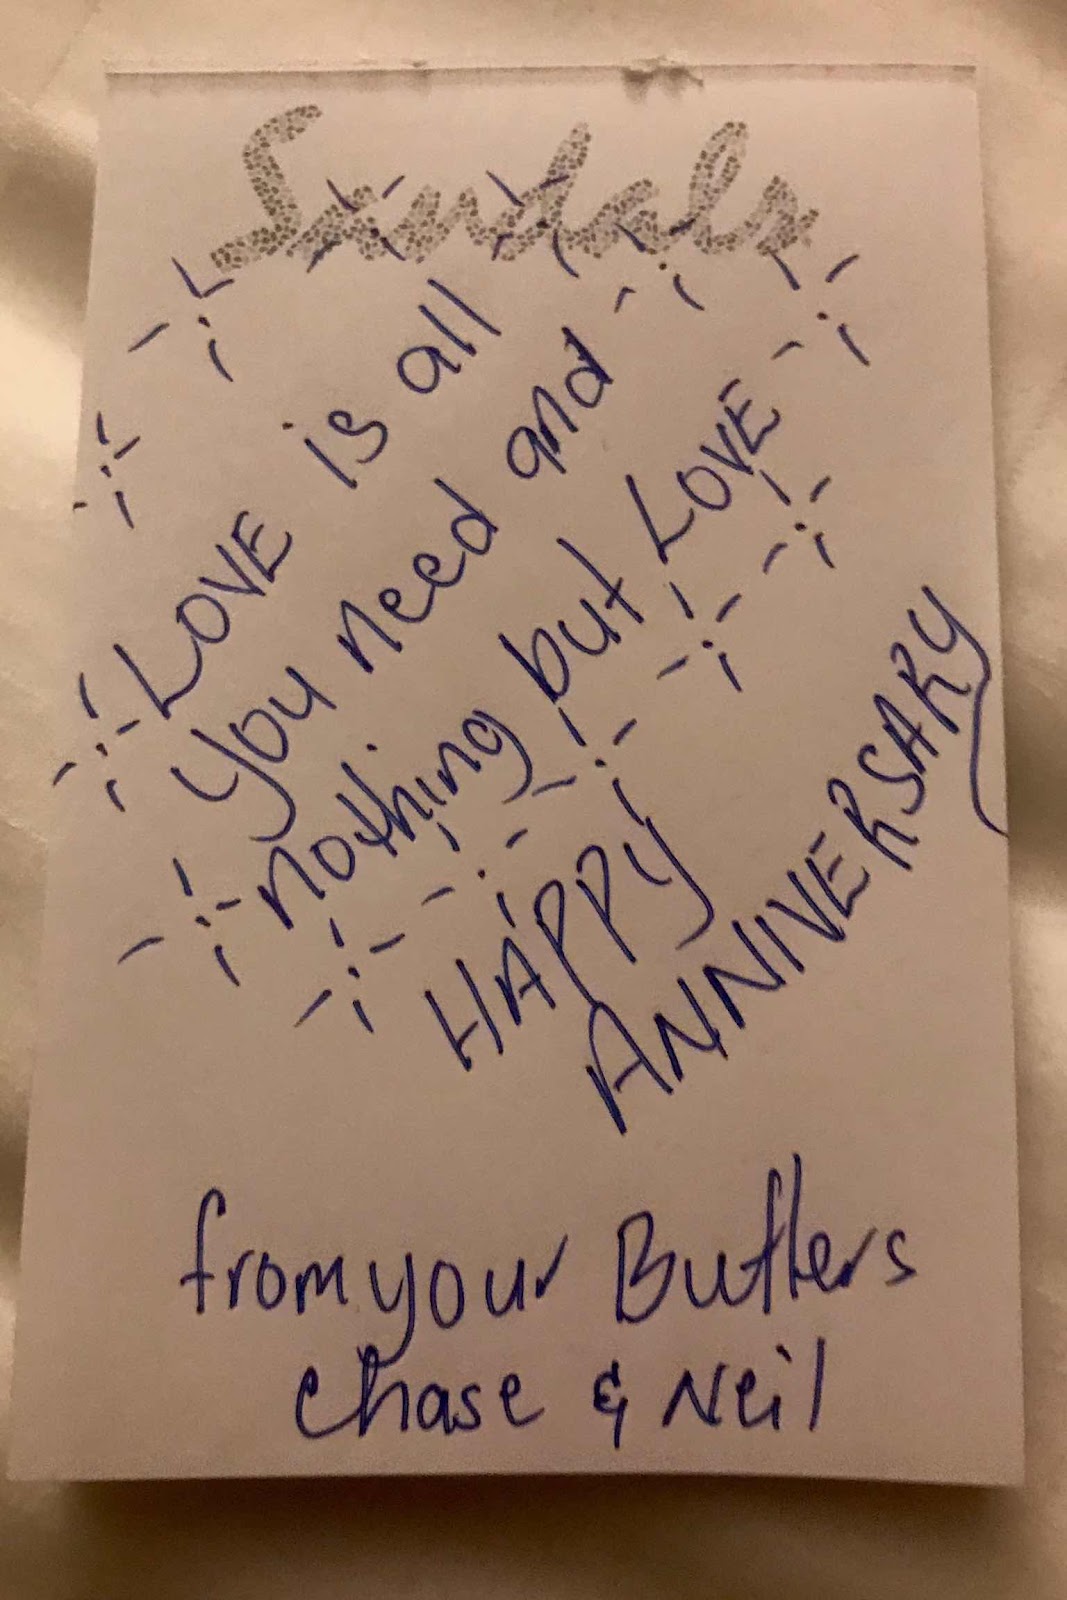 Sandals
LOVE is all
you need and
nothing but LOVE
HAPPY
ANNIVERSARY
from your Butlers
Chase & Neil